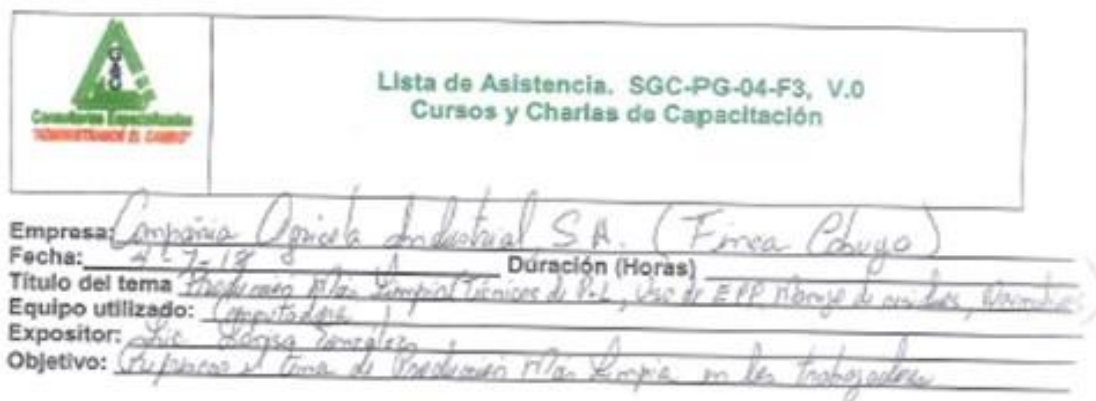 Consultores Especializados
"ADMINISTRANDO EL CAMBIO"
Lista de Asistencia. SGC-PG-04-F3, V.0
Cursos y Charlas de Capacitación
Empresa: Compañia Agricola Industrial, S.A. (Finca )
Fecha: 4-7-18 Duración (Horas)
Título del tema Produccion Mas Limpia (Tecnicas de P+L, Uso de EPP, Manejo de residuos,
Equipo utilizado: Computadora
Expositor: Lic. González
Objetivo: el tema de Produccion Mas Limpia en los trabajadores